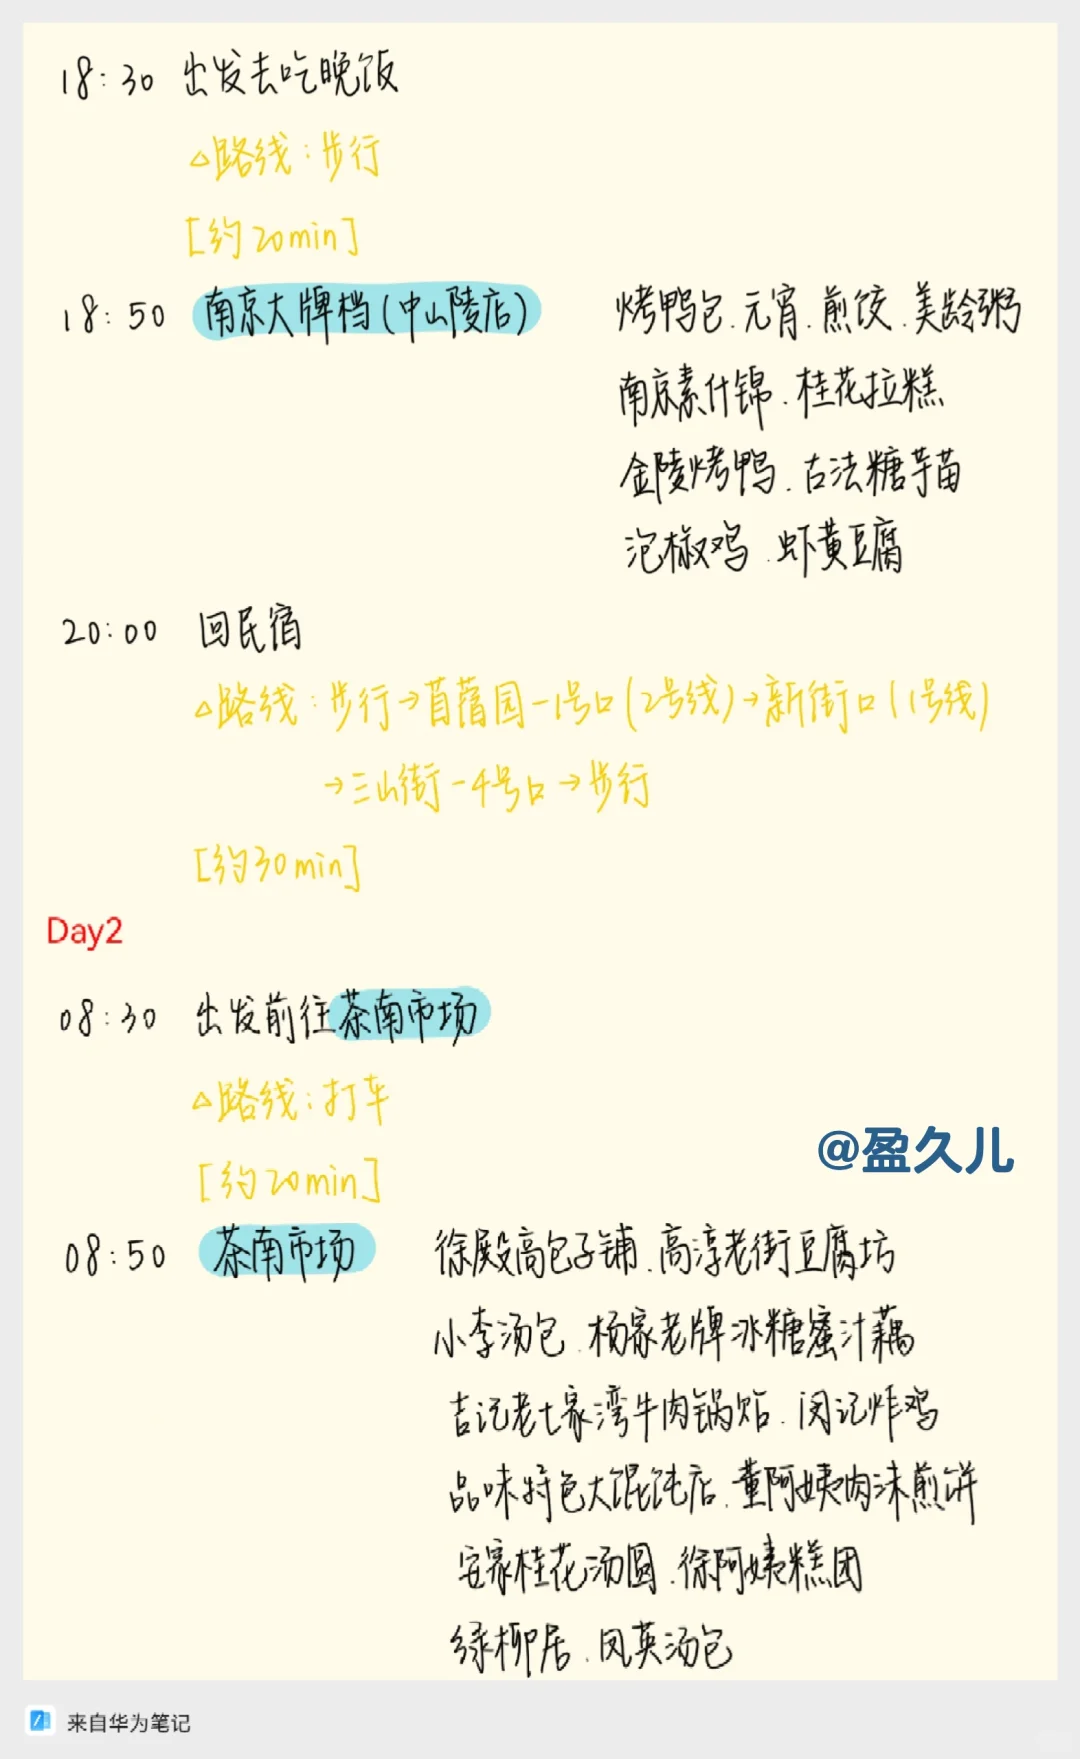 18:30 出发去吃晚饭
△路线:步行
[约20min]
18:50 南京大牌档(中山陵店) 烤鸭包.元宵.煎饺.美龄粥
南京素什锦.桂花拉糕
金陵烤鸭.古法糖芋苗
泡椒鸡.虾黄豆腐
20:00 回民宿
△路线:步行→苜蓿园-1号口(2号线)→新街口(1号线)
→三山街-4号口→步行
[约30min]
Day2
08:30 出发前往茶南市场
△路线:打车
[约20min]
@盈久儿
08:50 茶南市场 徐殿高包子铺.高淳老街豆腐坊
小李汤包.杨家老牌冰糖蜜汁藕
吉记老七家湾牛肉锅贴.闵记炸鸡
品味特色大馄饨店.董阿姨肉沫煎饼
安家桂花汤圆.徐阿姨糕团
绿柳居.凤英汤包
来自华为笔记